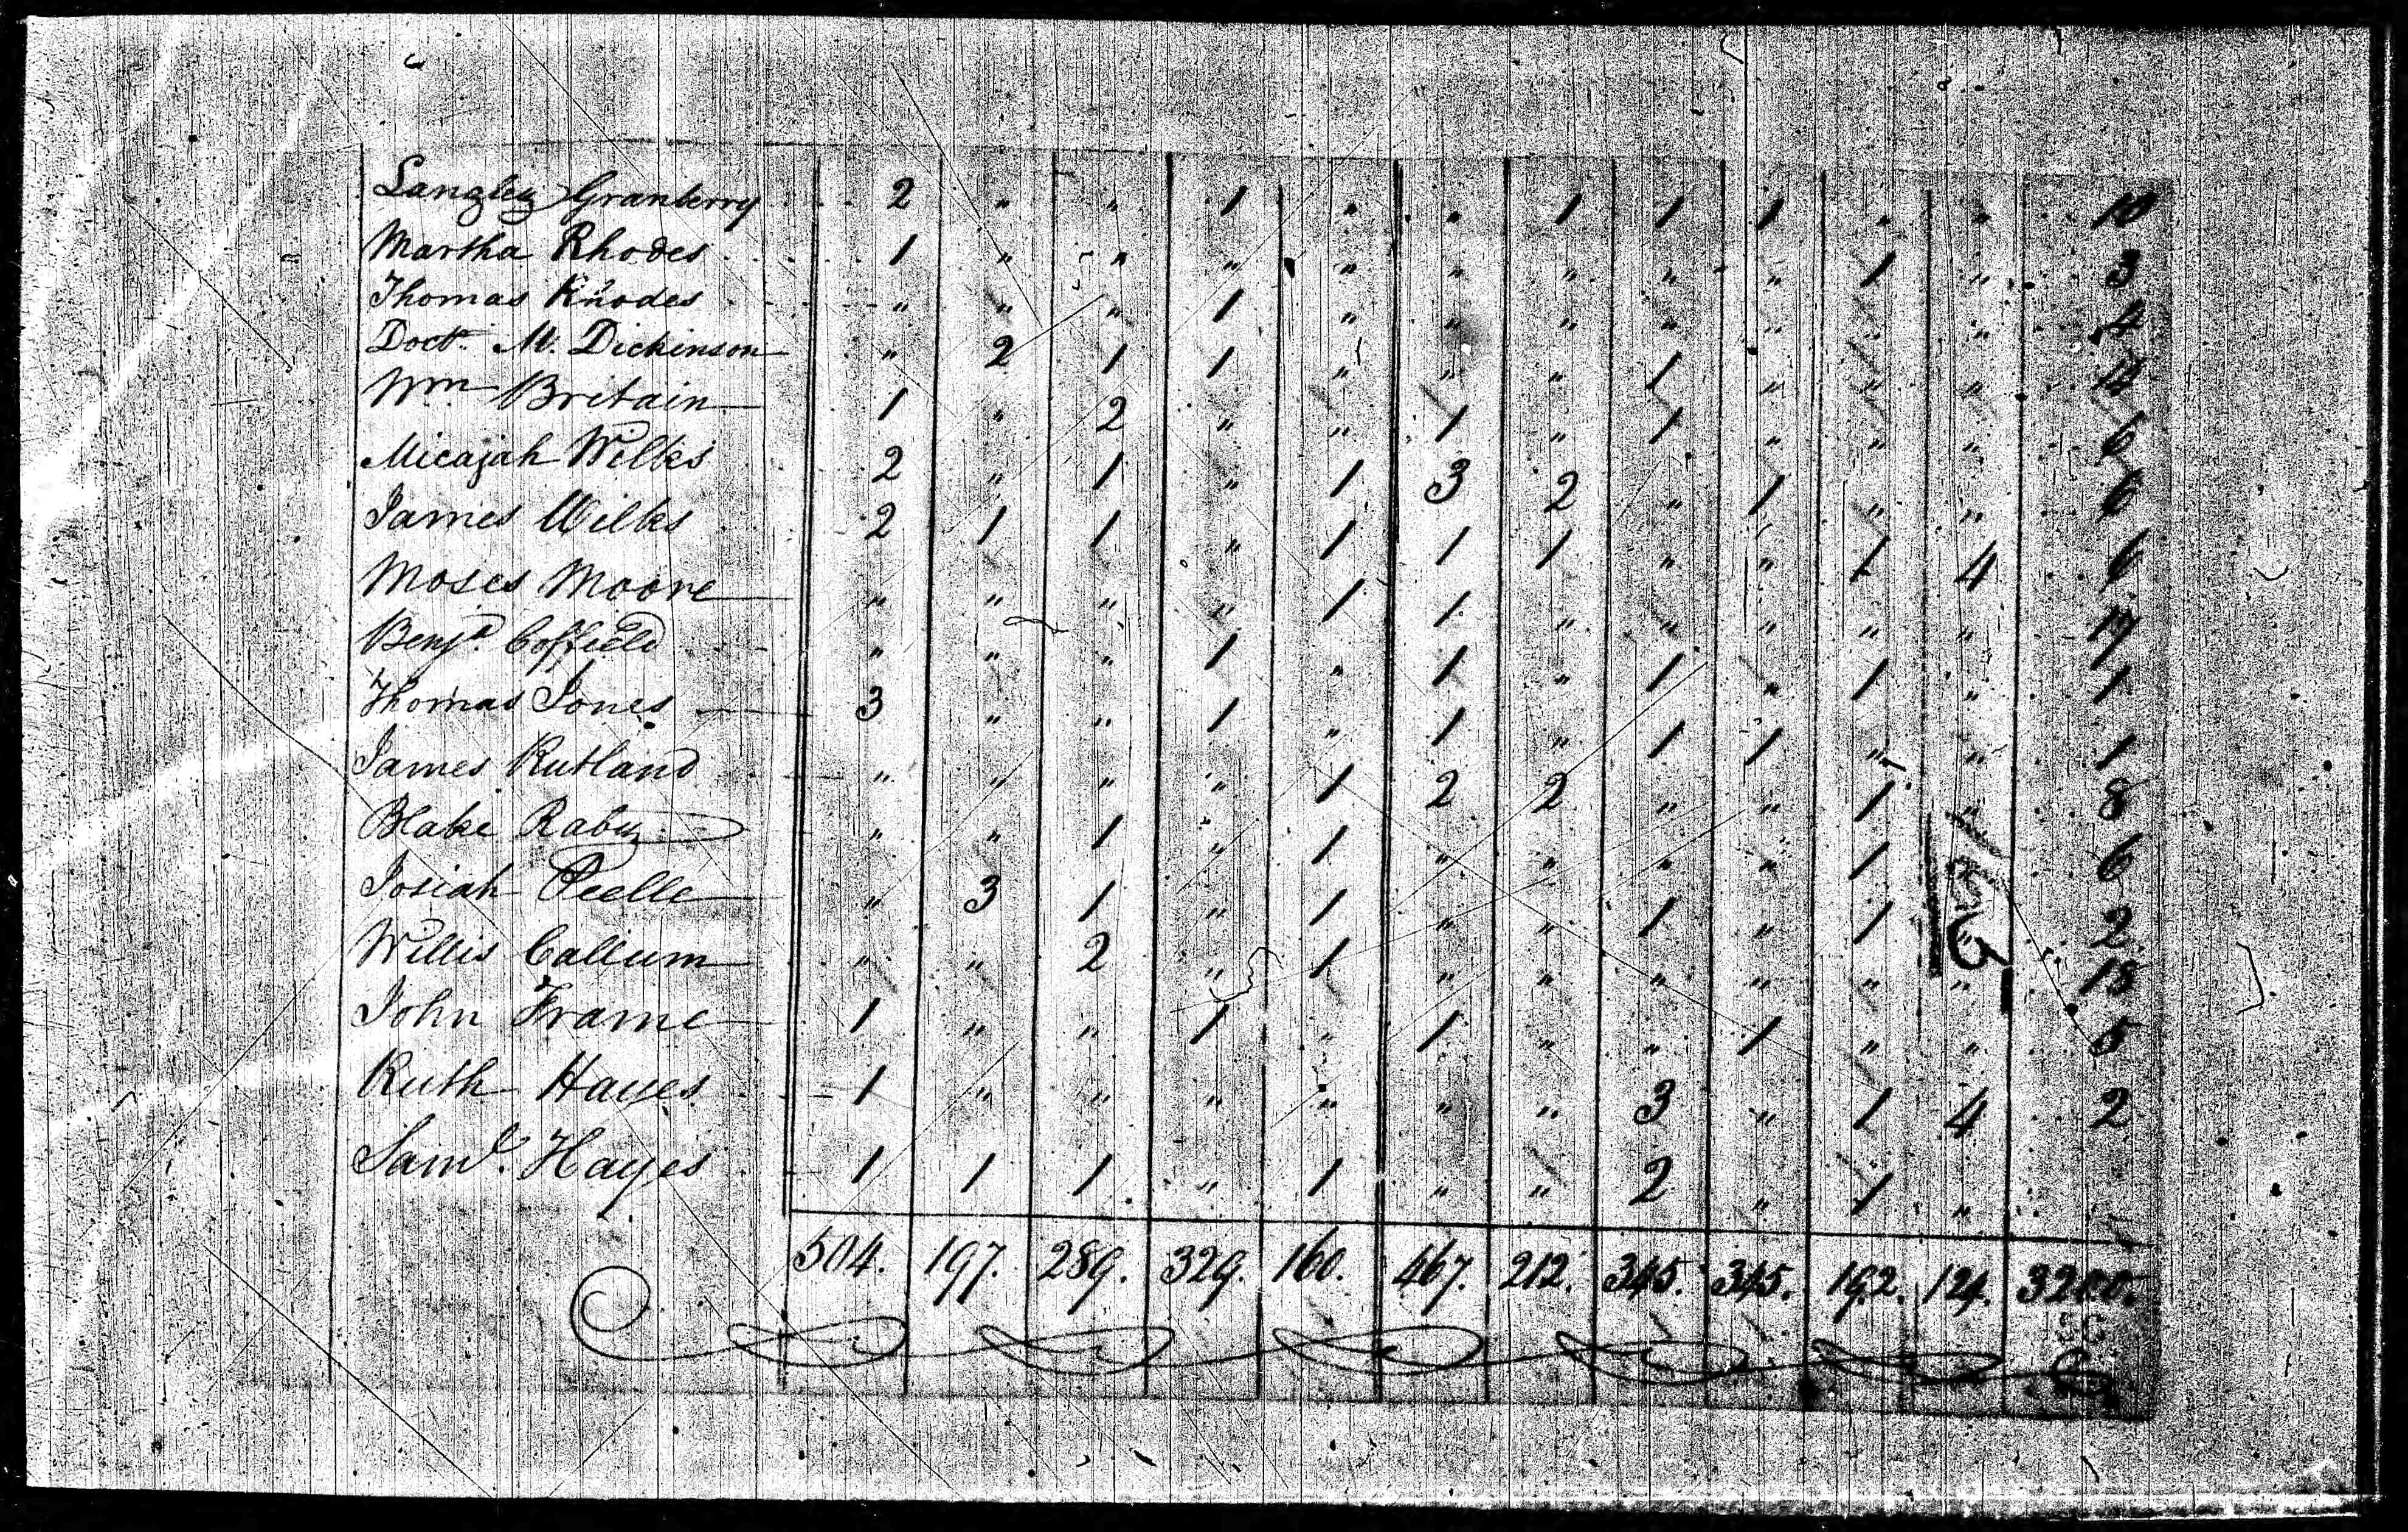 Langley Granberry 2 " " 1 " " 1 1 1 " " 10
Martha Rhodes 1 " " " " " " " " 1 " 3
Thomas Rhodes " " " 1 " " " " " " "
Doctr. M. Dickinson " 2 1 1 " " " 1 " " "
Wm Britain 1 " 2 " " 1 " 1 " " " 6
Micajah Wilks 2 " 1 " 1 3 2 " 1 " " 6
James Wilks 2 1 1 " 1 1 1 " " 1 4
Moses Moore " " " " 1 1 " " " " " 17
Benja. Coffield " " " 1 " 1 " 1 " 1 " 1
Thomas Jones 3 " " 1 " 1 " 1 1 " " 1
James Rutland " " " " 1 2 2 " " 1 " 8
Blake Raby " " 1 " 1 " " " " 1 6
Josiah Peelle " 3 1 " 1 " " 1 " 1 2
Willis Callum " " 2 " 1 " " " " " " 18
John Frame 1 " " 1 " 1 " " 1 " " 5
Ruth Hayes 1 " " " " " " 3 " 1 4 2
Saml. Hayes 1 1 1 " 1 " " 2 " 1 "
504. 197. 289. 329. 160. 467. 212. 345. 345. 192. 124.